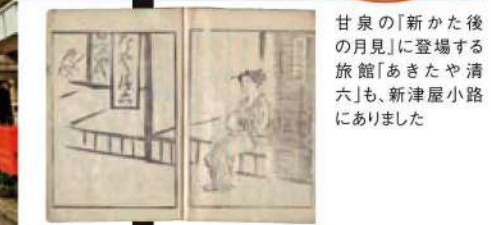 甘泉の『新かた後
の月見』に登場する
旅館「あきたや清
六」も、新津屋小路
にありました